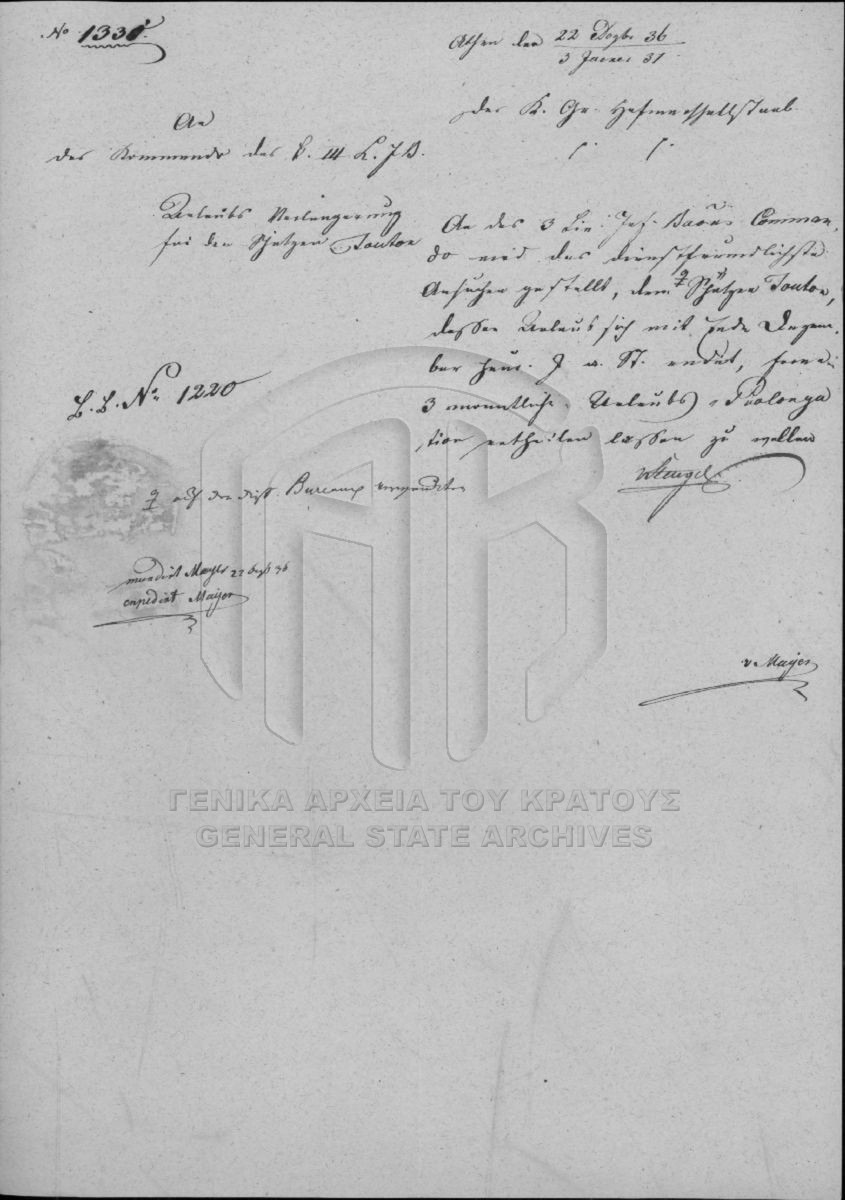 No 1331.
Athen den 22 Dezbr 36
3 Januar 37
Der K. Gr. Hofmarschallstaab
An
das Kommando des k. III L. J. B.
Urlaubs Verlängerung
für den Schützen Touton
An das 3 Lin: Inf. Baons Comman-
do wird das dienstfreundlichste
Ansuchen gestellt, dem Schützen Touton,
dessen Urlaub sich mit Ende Dezem-
ber heur. J. a. St. endet, eine
3 monatliche Urlaubs Prolonga
tion ertheilen lassen zu wollen
L. L. No 1220
auf den Bureaux verwendeten
mundirt Mayer 22 Dezb 36
expedirt Mayer
v. Mayer
ΓΕΝΙΚΑ ΑΡΧΕΙΑ ΤΟΥ ΚΡΑΤΟΥΣ
GENERAL STATE ARCHIVES